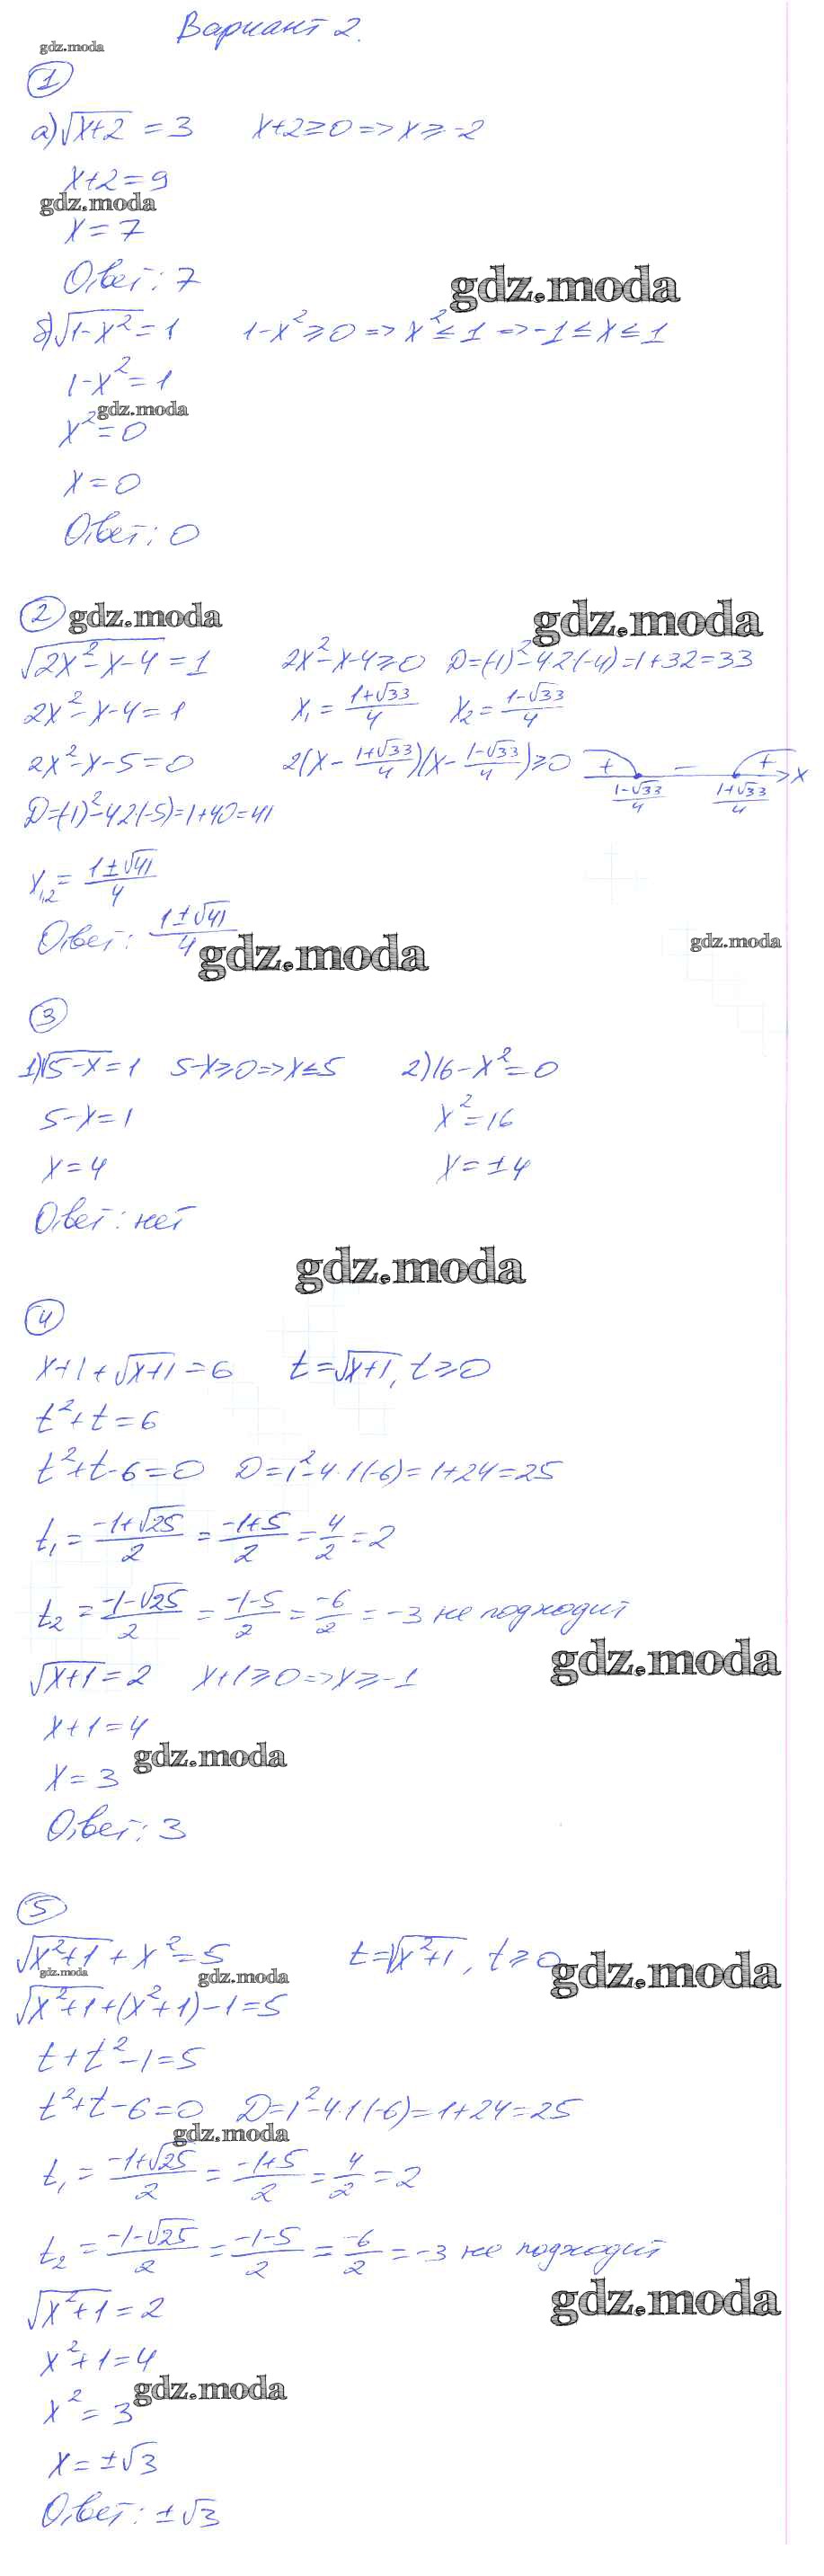 Вариант 2.
gdz.moda
1
а) √(x+2) = 3    x+2≥0 => x≥-2
x+2=9
gdz.moda
x=7
Ответ: 7
gdz.moda
б) √(1-x²) = 1    1-x²≥0 => x²≤1 => -1≤x≤1
1-x²=1
gdz.moda
x²=0
x=0
Ответ: 0
2 gdz.moda gdz.moda
√(2x²-x-4) = 1    2x²-x-4≥0    D=(-1)²-4·2(-4)=1+32=33
2x²-x-4=1    x₁=(1+√33)/4    x₂=(1-√33)/4
2x²-x-5=0    2(x-(1+√33)/4)(x-(1-√33)/4)≥0    + - + x
(1-√33)/4    (1+√33)/4
D=(-1)²-4·2(-5)=1+40=41
x₁,₂=(1±√41)/4
Ответ: (1±√41)/4
gdz.moda gdz.moda
3
1) √(5-x)=1    5-x≥0 => x≤5    2) 16-x²=0
5-x=1    x²=16
x=4    x=±4
Ответ: нет
gdz.moda
4
x+1+√(x+1)=6    t=√(x+1), t≥0
t²+t=6
t²+t-6=0    D=1²-4·1(-6)=1+24=25
t₁=(-1+√25)/2=(-1+5)/2=4/2=2
t₂=(-1-√25)/2=(-1-5)/2=-6/2=-3 не подходит
gdz.moda
√(x+1)=2    x+1≥0 => x≥-1
x+1=4
gdz.moda
x=3
Ответ: 3
5
√(x²+1)+x²=5    t=√(x²+1), t≥0
gdz.moda gdz.moda gdz.moda
√(x²+1)+(x²+1)-1=5
t+t²-1=5
t²+t-6=0    D=1²-4·1(-6)=1+24=25
gdz.moda
t₁=(-1+√25)/2=(-1+5)/2=4/2=2
t₂=(-1-√25)/2=(-1-5)/2=-6/2=-3 не подходит
gdz.moda
√(x²+1)=2
x²+1=4
gdz.moda
x²=3
x=±√3
Ответ: ±√3